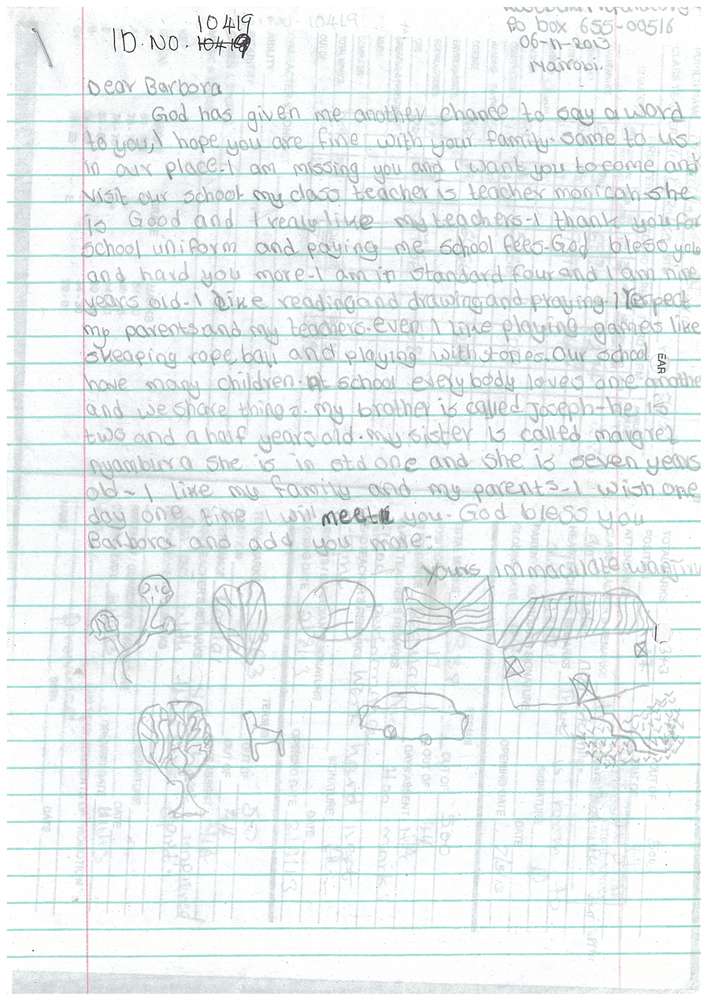 10419
ID. NO. 10419
PO box 655-00516
06-11-2013
Nairobi.
Dear Barbora
God has given me another chance to say a word
to you, I hope you are fine with your family same to us
in our place-I am missing you and I want you to come and
visit our school my class teacher is teacher monicah-she
is Good and I really like my teachers-I thank you for
school uniform and paying me school fees-God bless you
and hard you more-I am in standard four and I am nine
years old-I like reading and drawing and praying-I respect
my parents and my teachers-even I like playing games like
skeaping rope, ball and playing with stones. Our school
EAR
have many children. At school everybody loves one anothe
and we share things. my brother is called Joseph-he is
two and a half years old. my sister is called margret
nyambura she is in std one and she is seven years
old-I like my family and my parents-I wish one
day one time I will meet you. God bless you
Barbora and add you more:
yours immaculate